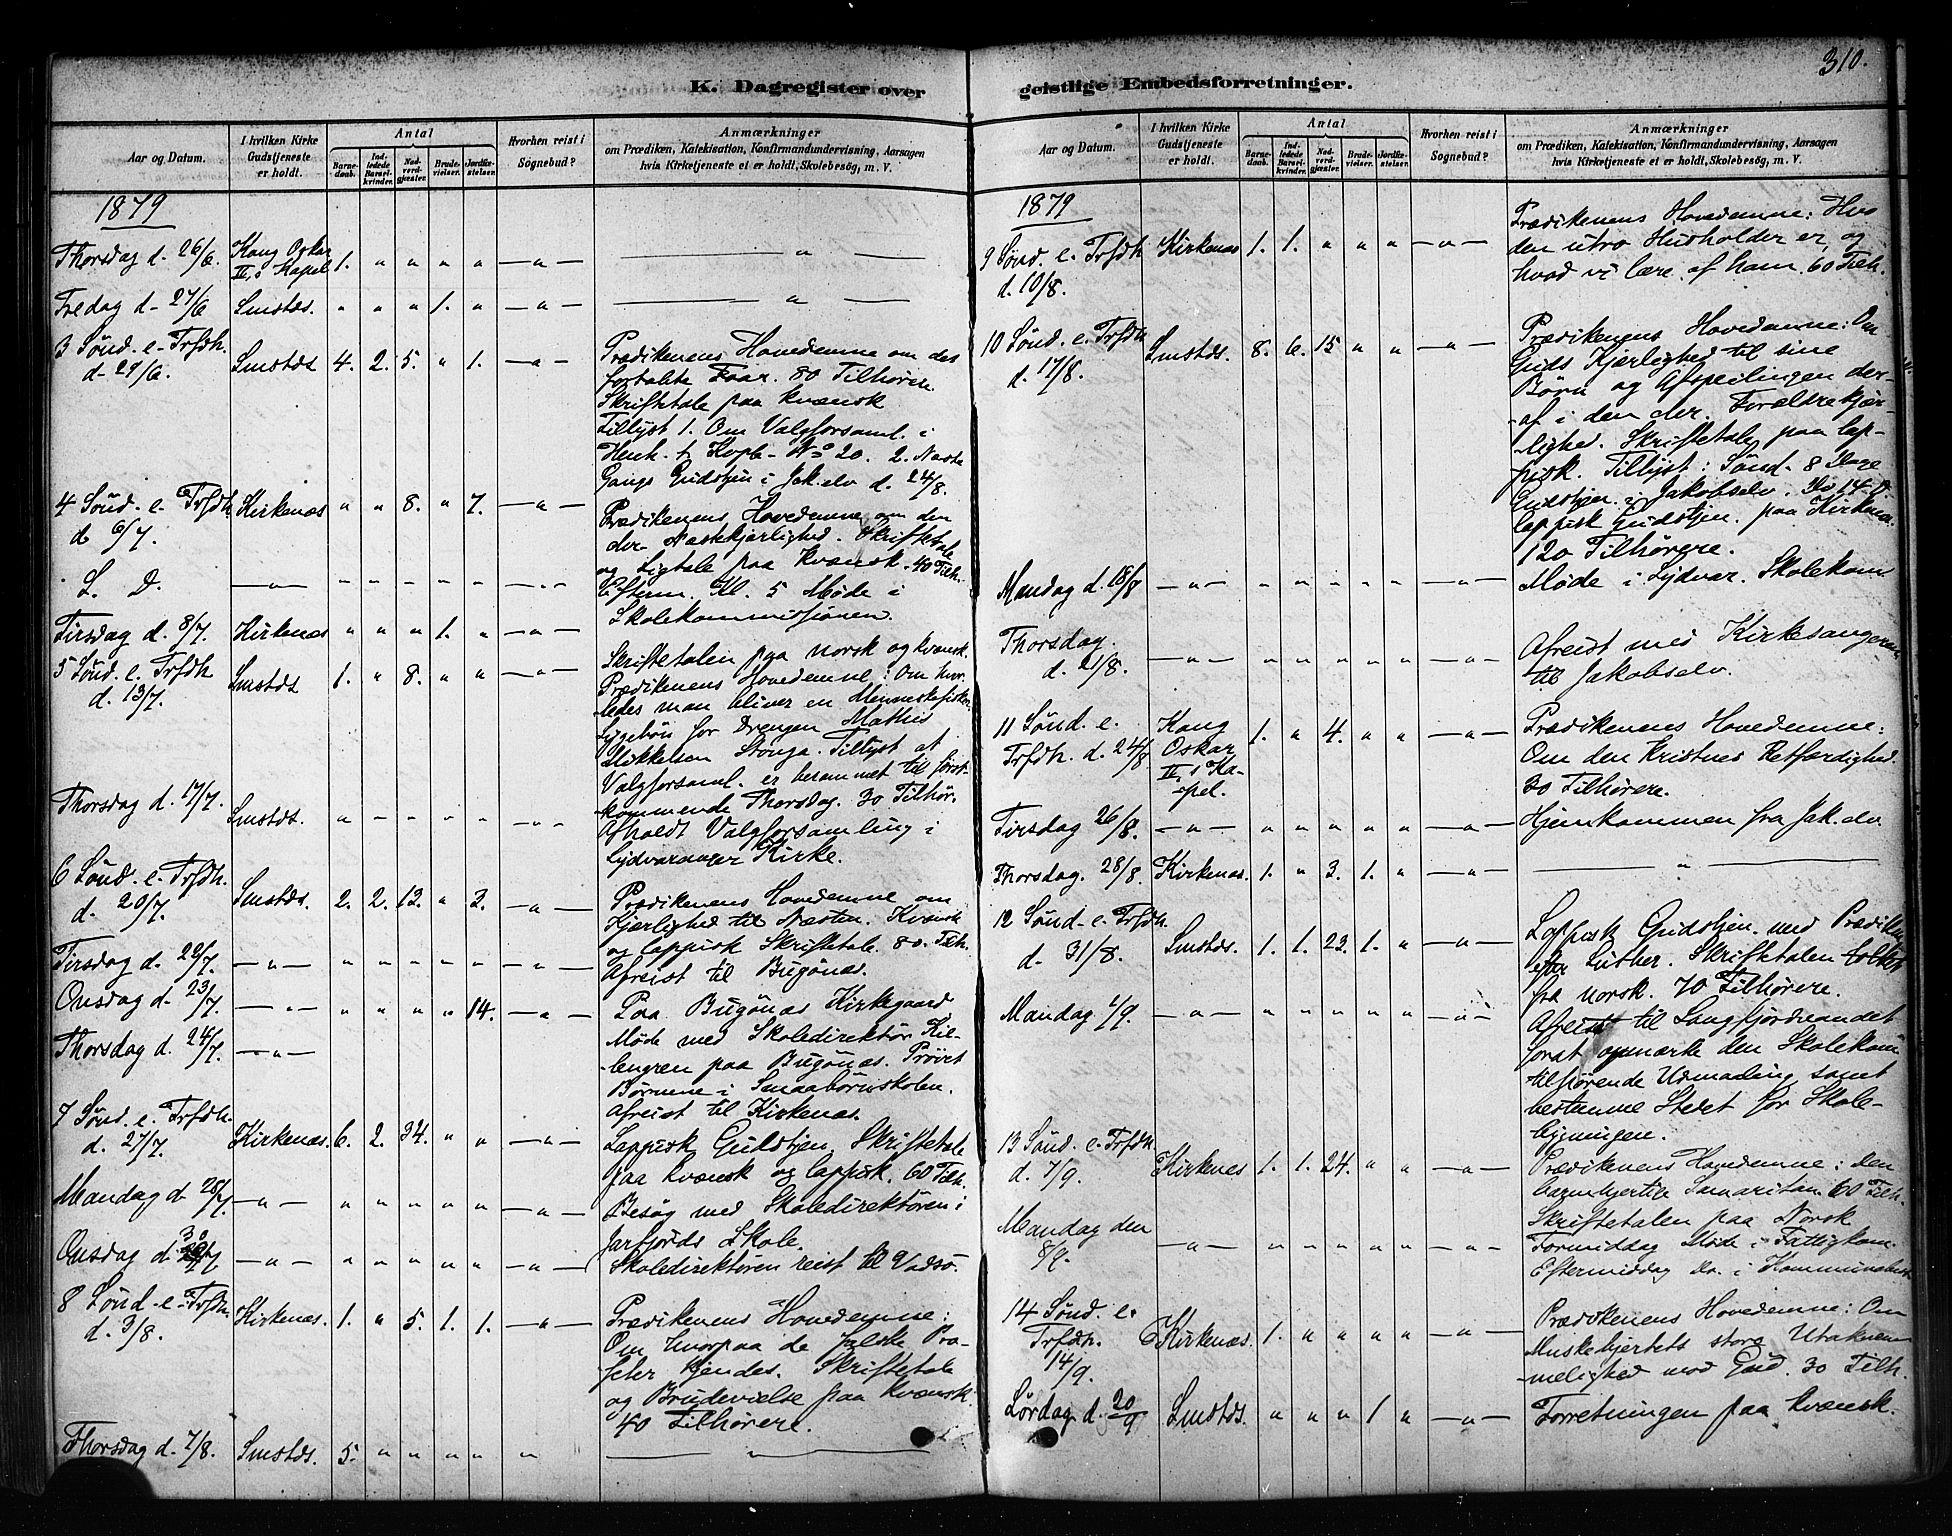 310.
K. Dagregister over
geistlige Embedsforretninger.
Aar og Datum.
I hvilken Kirke
Gudstjeneste
er holdt.
Antal
Barne-
daab.
Ind-
ledede
Barsel-
kvinder.
Nad-
verd-
gjæster.
Brude-
vielser.
Jordfæ-
stelser.
Hvorhen reist i
Sognebud?
Anmærkninger
om Prædiken, Katekisation, Konfirmandundervisning, Aarsagen
hvis Kirketjeneste ei er holdt, Skolebesög, m. V.
1879
Thorsdag d. 26/6 Kong Oskar
II,s Kapel 1. " " " " —"— — " —
Fredag d. 27/6 Smstds. " " " 1. " —"— — " —
3 Sønd. e. Trfdh.
d. 29/6. Smstds 4. 2. 5. " 1. —"— Prædikenens Hovedemne om det
fortabte Faar. 80 Tilhørere.
Skriftetale paa kvænsk
Tillyst 1. Om Valgforsaml. i
Henh. t. Kopb. No 20. 2. Næste
Gangs Gudstjen i Jak.elv d. 24/8.
4 Sønd. e. Trfdh.
d 6/7. Kirkenæs " " 8. " 7. —"— Prædikenens Hovedemne om den
Næstekjærlighed. Skriftetale
og Ligtale paa kvænsk. 40 Tilh.
S. D. —"— " " " " " —"— Efterm. Kl. 5 Møde i
Skolekommissionen.
Tirsdag d. 8/7. Kirkenæs " " " 1. " —"—
Skriftetalen paa norsk og kvænsk.
5 Sønd. e. Trfdh
d. 13/7. Smstds 1. " 8. " " —"— Prædikenens Hovedemne: Om hvor-
ledes man bliver en Menneskefisker.
for Drengen Mathis
Mikkelsen Stonga. Tillyst at
Valgforsaml. er berammet til först-
kommende Thorsdag. 30 Tilhør.
Thorsdag d. 17/7. Smstds. " " " " " —"— Afholdt Valgforsamling i
Sydvaranger Kirke.
6 Sønd. e. Trfdh.
d. 20/7. Smstds. 2. 2. 13. " 3. —"— Prædikenens Hovedemne om
Kjærlighed til Næsten. Kvænsk
og lappisk Skriftetale. 80. Tilh.
Tirsdag d. 22/7. —"— " " " " " —"— Afreist til Bugönæs.
Onsdag d. 23/7. —"— " " " " 14. —"— Paa Bugönæs Kirkegaard
Thorsdag d. 24/7. —"— Møde med Skoledirektør Kil-
lengren paa Bugönæs. Prövet
Børnene i Smaabörnskolen.
Afreist til Kirkenæs.
7 Sønd. e. Trfdh.
d. 27/7. Kirkenæs. 6. 2. 34. " " —"— Lappisk Gudstjen. Skriftetale
paa kvænsk og lappisk. 60 Tilh.
Mandag d 28/7 —"— " " " " " —"— Besøg med Skoledirektören i
Jarfjords Skole.
Onsdag d 30/7 —"— " " " " " —"— Skoledirektören reist til Vadsö.
8 Sönd. e. Trfdh.
d. 3/8. Kirkenæs. 1. " 5. 1. 1. —"— Prædikenens Hovedemne:
Om hvorpaa de falske Pro-
feter kjendes. Skriftetale
og Brudevielse paa kvænsk.
40 Tilhørere.
Thorsdag d. 7/8. Smstds. 5. " " " " " — " —
Aar og Datum.
I hvilken Kirke
Gudstjeneste
er holdt.
Antal
Barne-
daab.
Ind-
ledede
Barsel-
kvinder.
Nad-
verd-
gjæster.
Brude-
vielser.
Jordfæ-
stelser.
Hvorhen reist i
Sognebud?
Anmærkninger
om Prædiken, Katekisation, Konfirmandundervisning, Aarsagen
hvis Kirketjeneste ei er holdt, Skolebesög, m. V.
1879
9 Sønd. e. Trfdh
d. 10/8. Kirkenæs 1. 1. " " " —"— Prædikenens Hovedemne: Hvo
den utro Husholder er, og
hvad vi lære af ham. 60 Tilh.
10 Sønd. e. Trfdh
d. 17/8. Smstds. 8. 6. 15 " " —"— Prædikenens Hovedemne: Om
Guds Kjærlighed til sine
Børn og Afspeilingen der-
af i den Forældrekjær-
lighed. Skriftetale paa lap-
pisk. Tillyst: Sønd. 8 Dage
Gudstjen. i Jakobselv. Do 14 D.
lappisk Gudstjen. paa Kirkenæs.
120 Tilhørere.
Mandag d. 18/8 —"— " " " " " —"— Møde i Sydvar. Skolekom
Thorsdag
d. 21/8. —"— " " " " " —"— Afreist med Kirkesangeren
til Jakobselv.
11 Sønd. e.
Trfdh. d. 24/8 Kong
Oskar
II,s Ka-
pel. 1. " 4. " " —"— Prædikenens Hovedemne:
Om den Kristnes Retfærdighed.
30 Tilhørere.
Tirsdag 26/8. —"— " " " " " —"— Hjemkommen fra Jak.elv.
Thorsdag. 28/8. Kirkenæs. 1. " 3. 1. " —"— — " —
12 Sønd. e. Trfdh.
d. 31/8. Smstds. 1. 1. 23. 1. " —"— Lappisk Gudstjen. med Prædiken
efter Luther. Skriftetalen tolket
fra norsk. 70 Tilhørere.
Mandag 1/9. —"— " " " " " —"— Afreist til Langfjordvandet
forat opmærke den Skolekom
tilhørende Udmaaling samt
bestemme Stedet for Skole-
bygningen.
13 Sønd. e. Trfdh
d. 7/9. Kirkenæs 1. 1. 24. " " —"— Prædikenens Hovedemne: Den
barmhjertile Samaritan 60 Tilh.
Skriftetalen paa Norsk
Mandag den
8/9. —"— " " " " " —"— Formiddag Møde i Fattigkom.
Eftermiddag Do. i Kommunebest.
14 Sønd. e.
Trfdh.
14/9. Kirkenæs. 1. " " " " —"— Prædikenens Hovedemne: Om
Mskehjertets store Utaknem-
melighed mod Gud. 30 Tilh.
Lørdag d. 20/9 Smstds. " " " 1 " —"— Forretningen paa kvænsk.